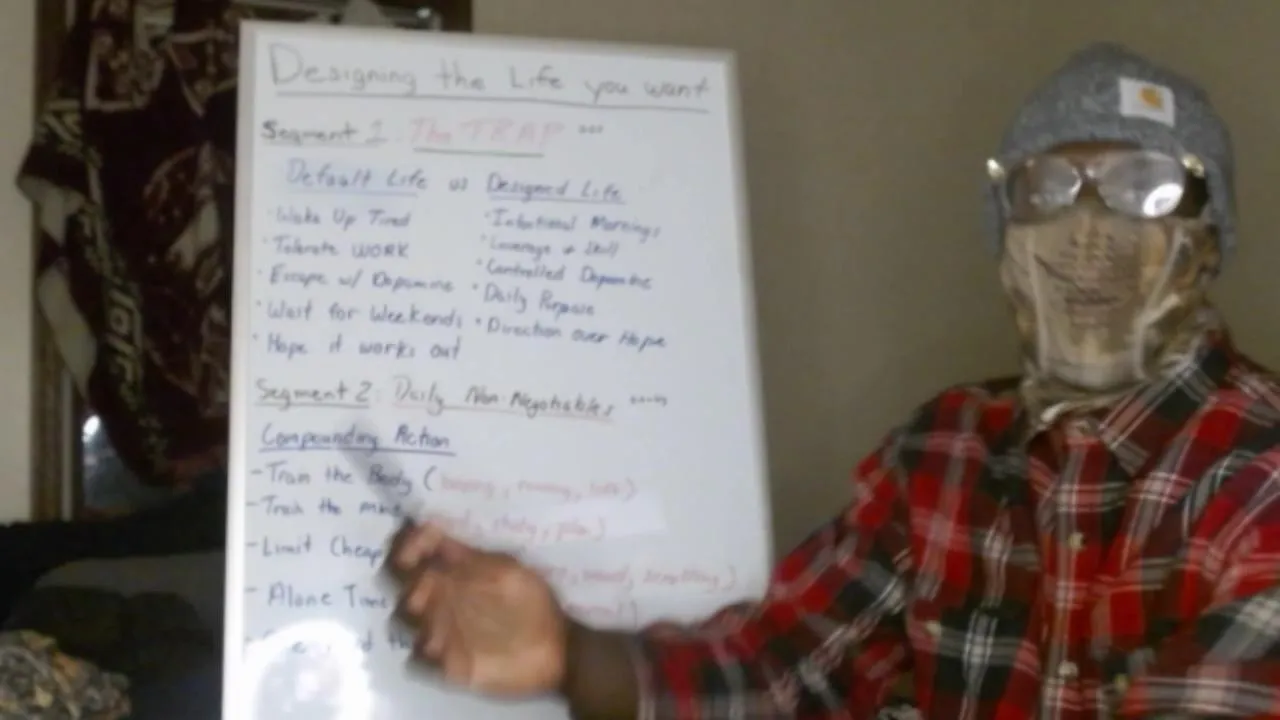 Designing the Life you want
Segment 1: The TRAP
Default Life vs Designed Life
• Wake Up Tired
• Tolerate WORK
• Escape w/ Dopamine
• Wait for Weekends
• Hope it works out
• Intentional Mornings
• Leverage & Skill
• Controlled Dopamine
• Daily Purpose
• Direction over Hope
Segment 2: Daily Non-Negotiables
Compounding Action
- Train the Body ( , running, )
- Train the , study, plan)
- Limit Cheap , scrolling)
- Alone Time